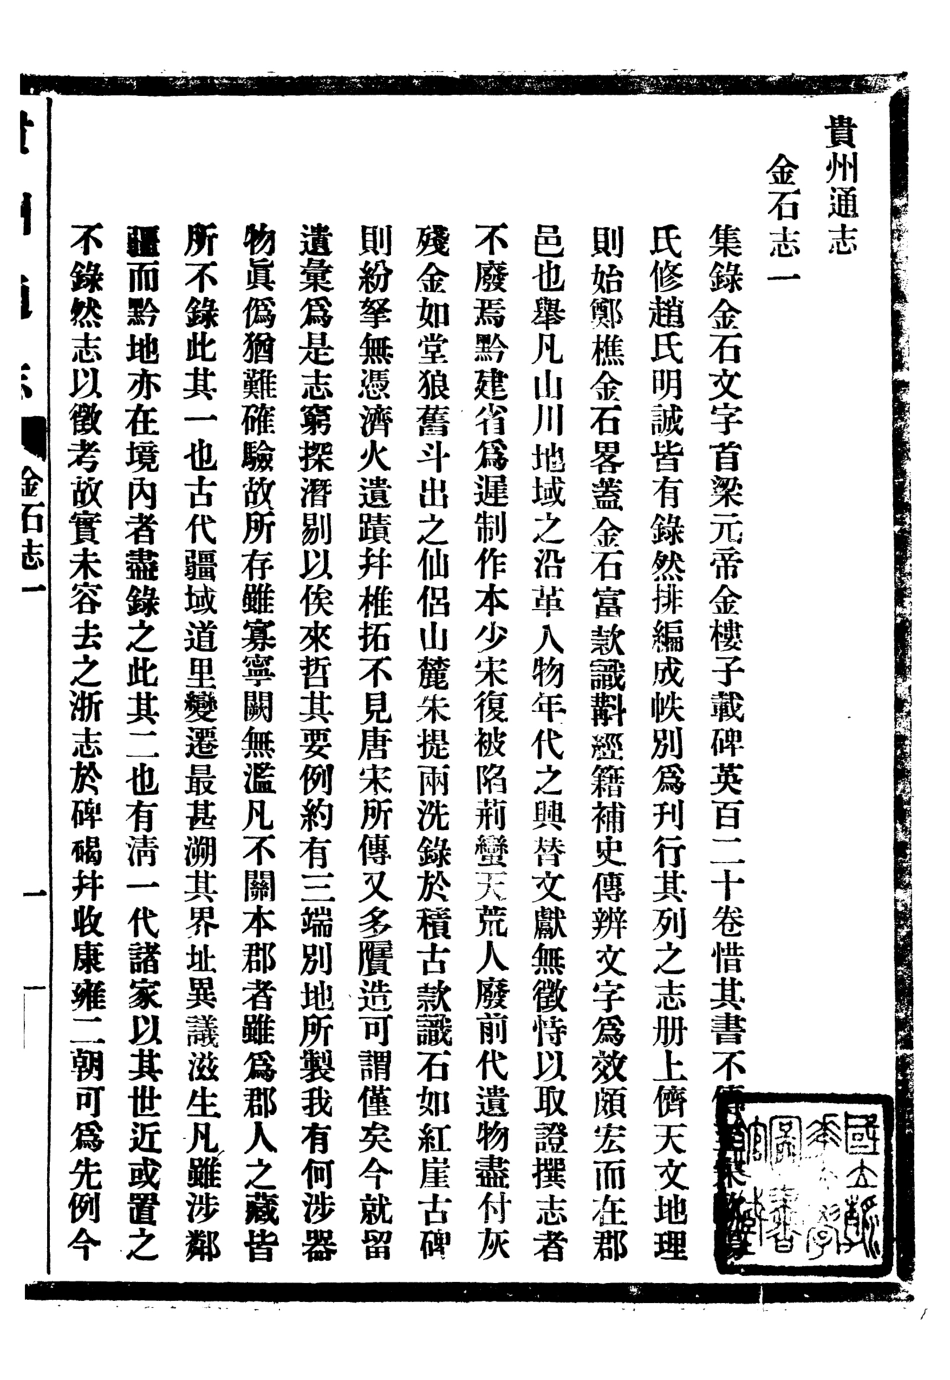 貴州通志
金石志一
集錄金石文字首梁元帝金樓子載碑英百二十卷惜其書不傳至宋歐陽
氏修趙氏明誠皆有錄然排編成帙別爲刊行其列之志册上儕天文地理
則始鄭樵金石畧蓋金石富欵識斠經籍補史傳辨文字爲效頗宏而在郡
邑也舉凡山川地域之沿革人物年代之興替文獻無徵恃以取證撰志者
不廢焉黔建省爲遲制作本少宋復被陷荊蠻天荒人廢前代遺物盡付灰
殘金如堂狼舊斗出之仙侶山麓朱提兩洗錄於積古欵識石如紅崖古碑
則紛拏無憑濟火遺蹟幷椎拓不見唐宋所傳又多贗造可謂僅矣今就留
遺彙爲是志窮探潛剔以俟來哲其要例約有三端別地所製我有何涉器
物眞僞猶難確驗故所存雖寡寧闕無濫凡不關本郡者雖爲郡人之藏皆
所不錄此其一也古代疆域道里變遷最甚溯其界址異議滋生凡雖涉鄰
疆而黔地亦在境內者盡錄之此其二也有淸一代諸家以其世近或置之
不錄然志以徵考故實未容去之浙志於碑碣幷收康雍二朝可爲先例今
貴州通志
金石志一
一